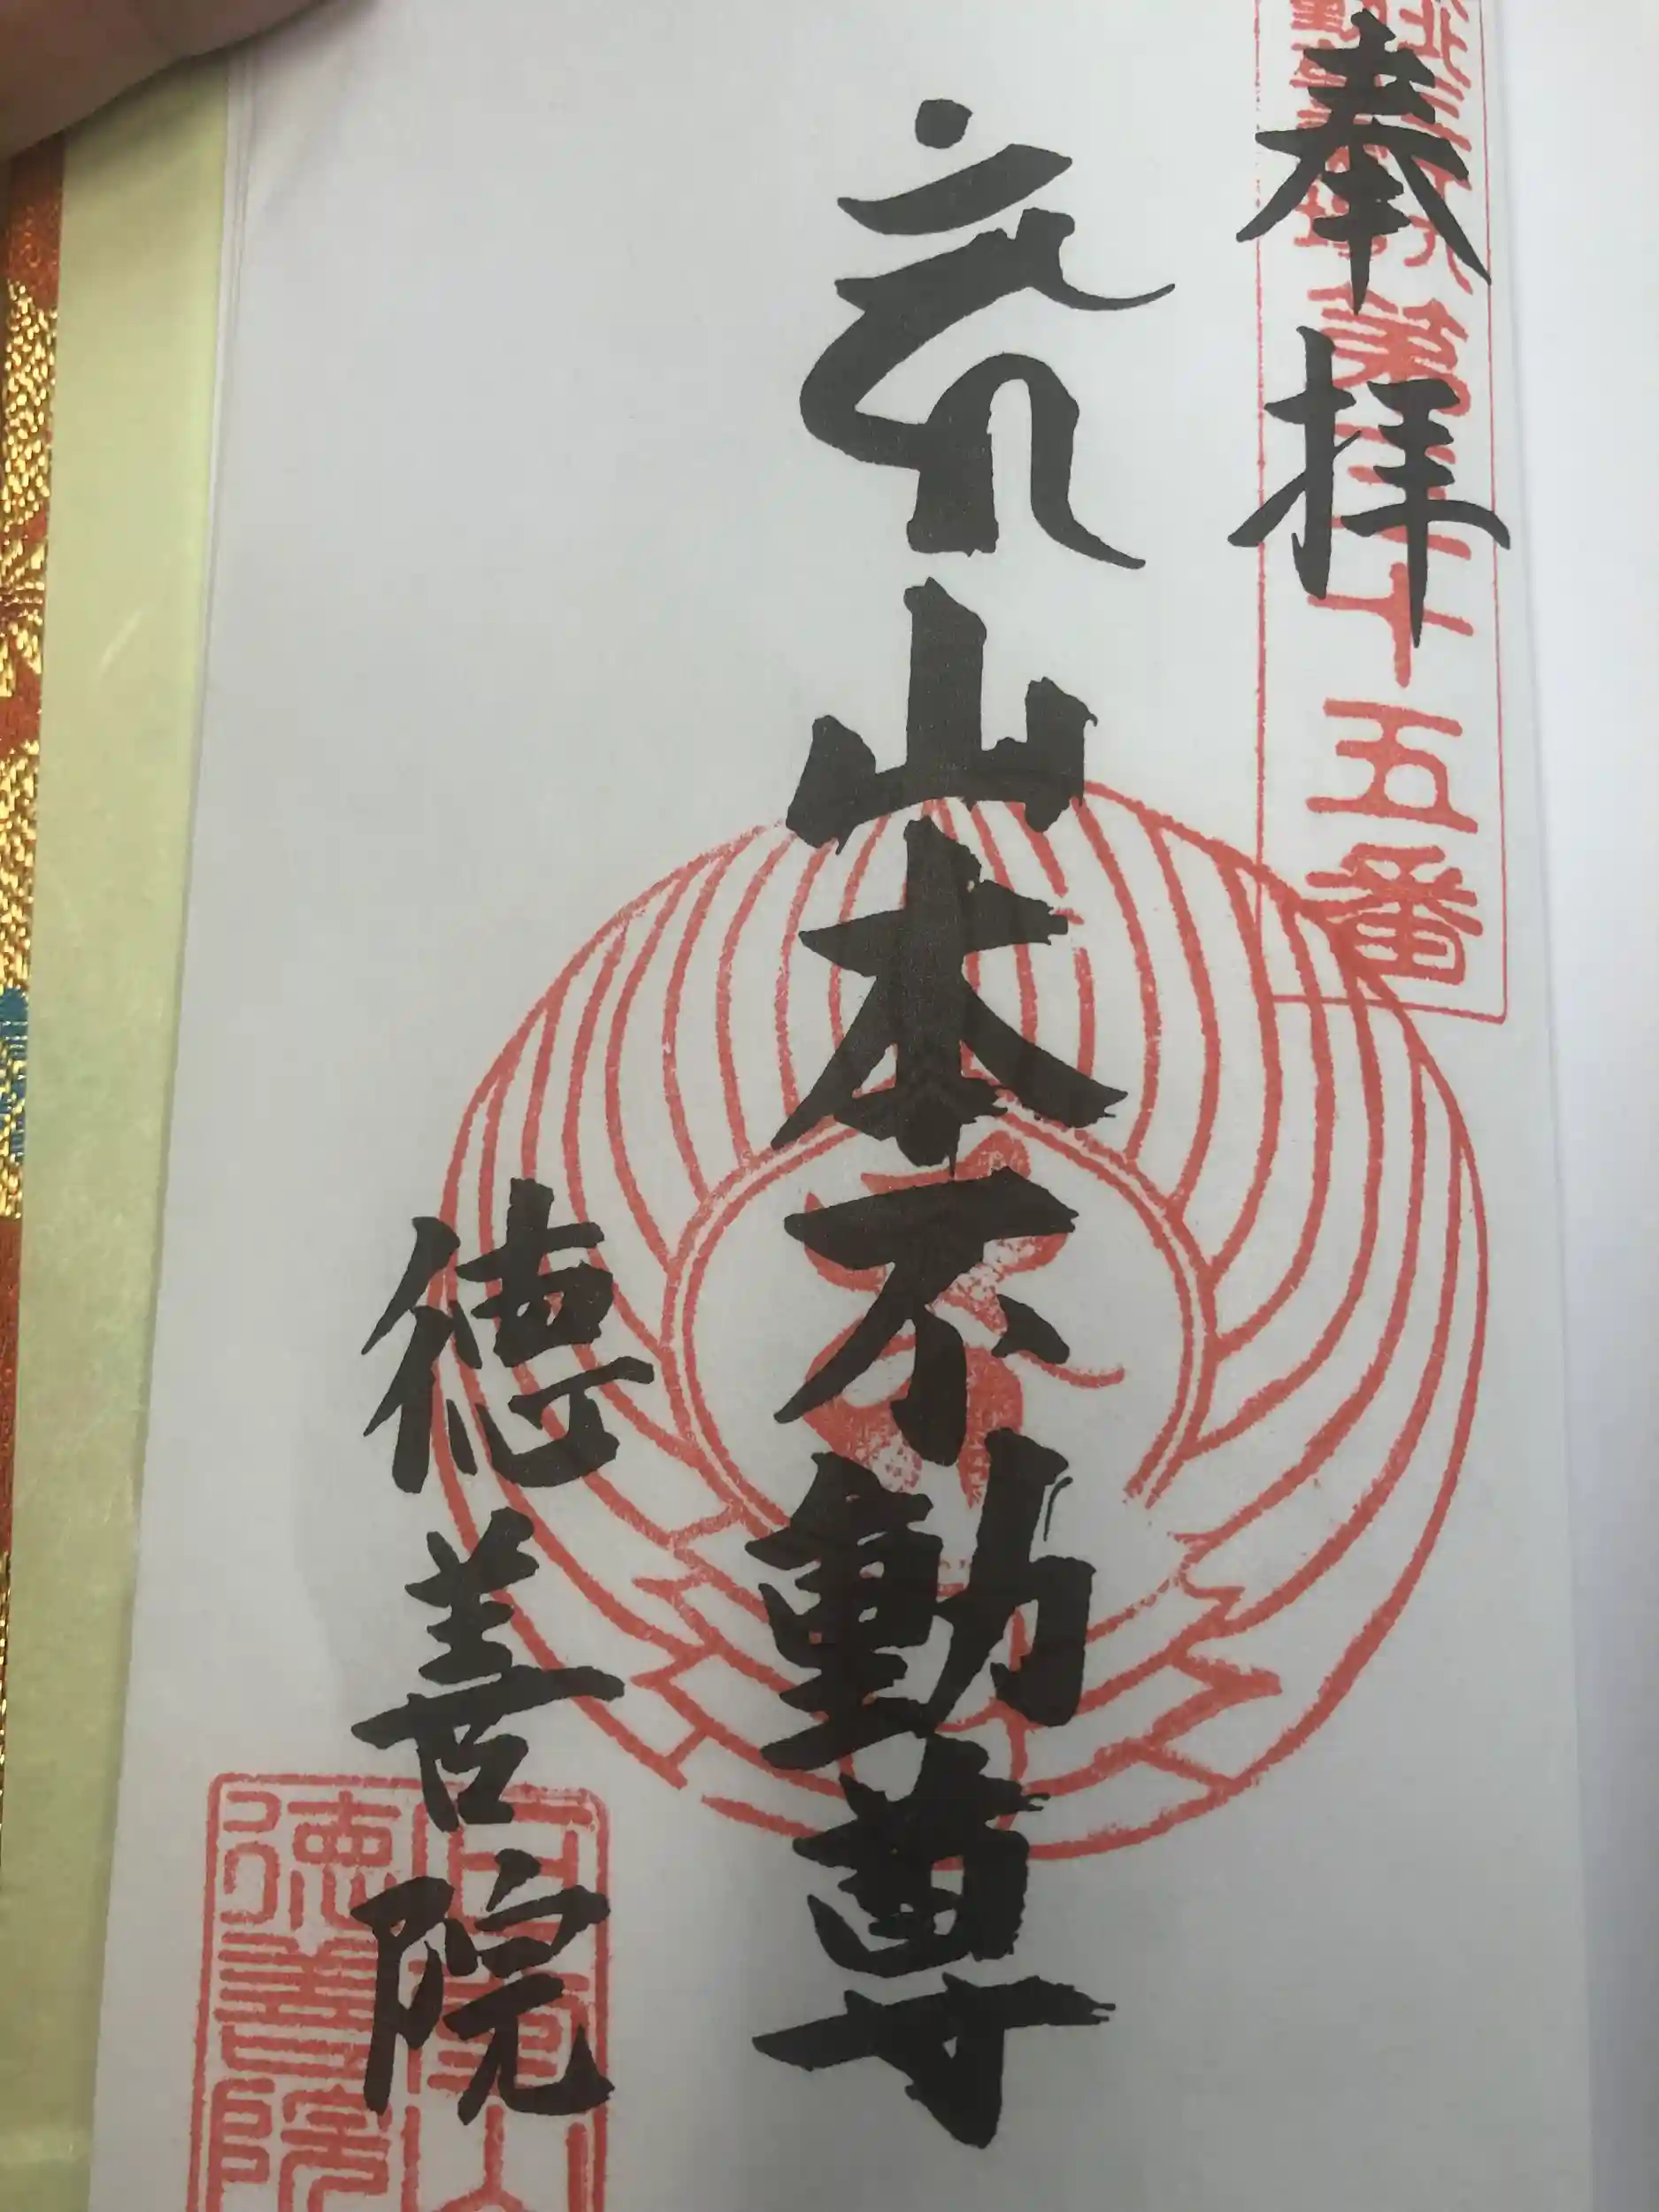 奉拝
第三十五番
山本不動尊
徳善院
徳善院